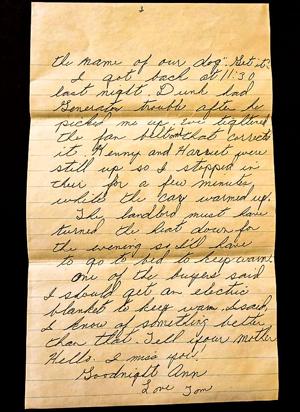 the name of our dog". Get it?
I got back at 11:30
last night. Dunk had
Generator trouble after he
picked me up. We tightened
the fan belt and that corrected
it. Kenny and Harriet were
still up so I stopped in
there for a few minutes
while the car warmed up.
The landlord must have
turned the heat down for
the evening so I'll have
to go to bed to keep warm.
One of the buyers said
I should get an electric
blanket to keep warm. I said,
I know of something better
than that. Tell your mother
Hello. I miss you!
Goodnight Ann
Love Tom